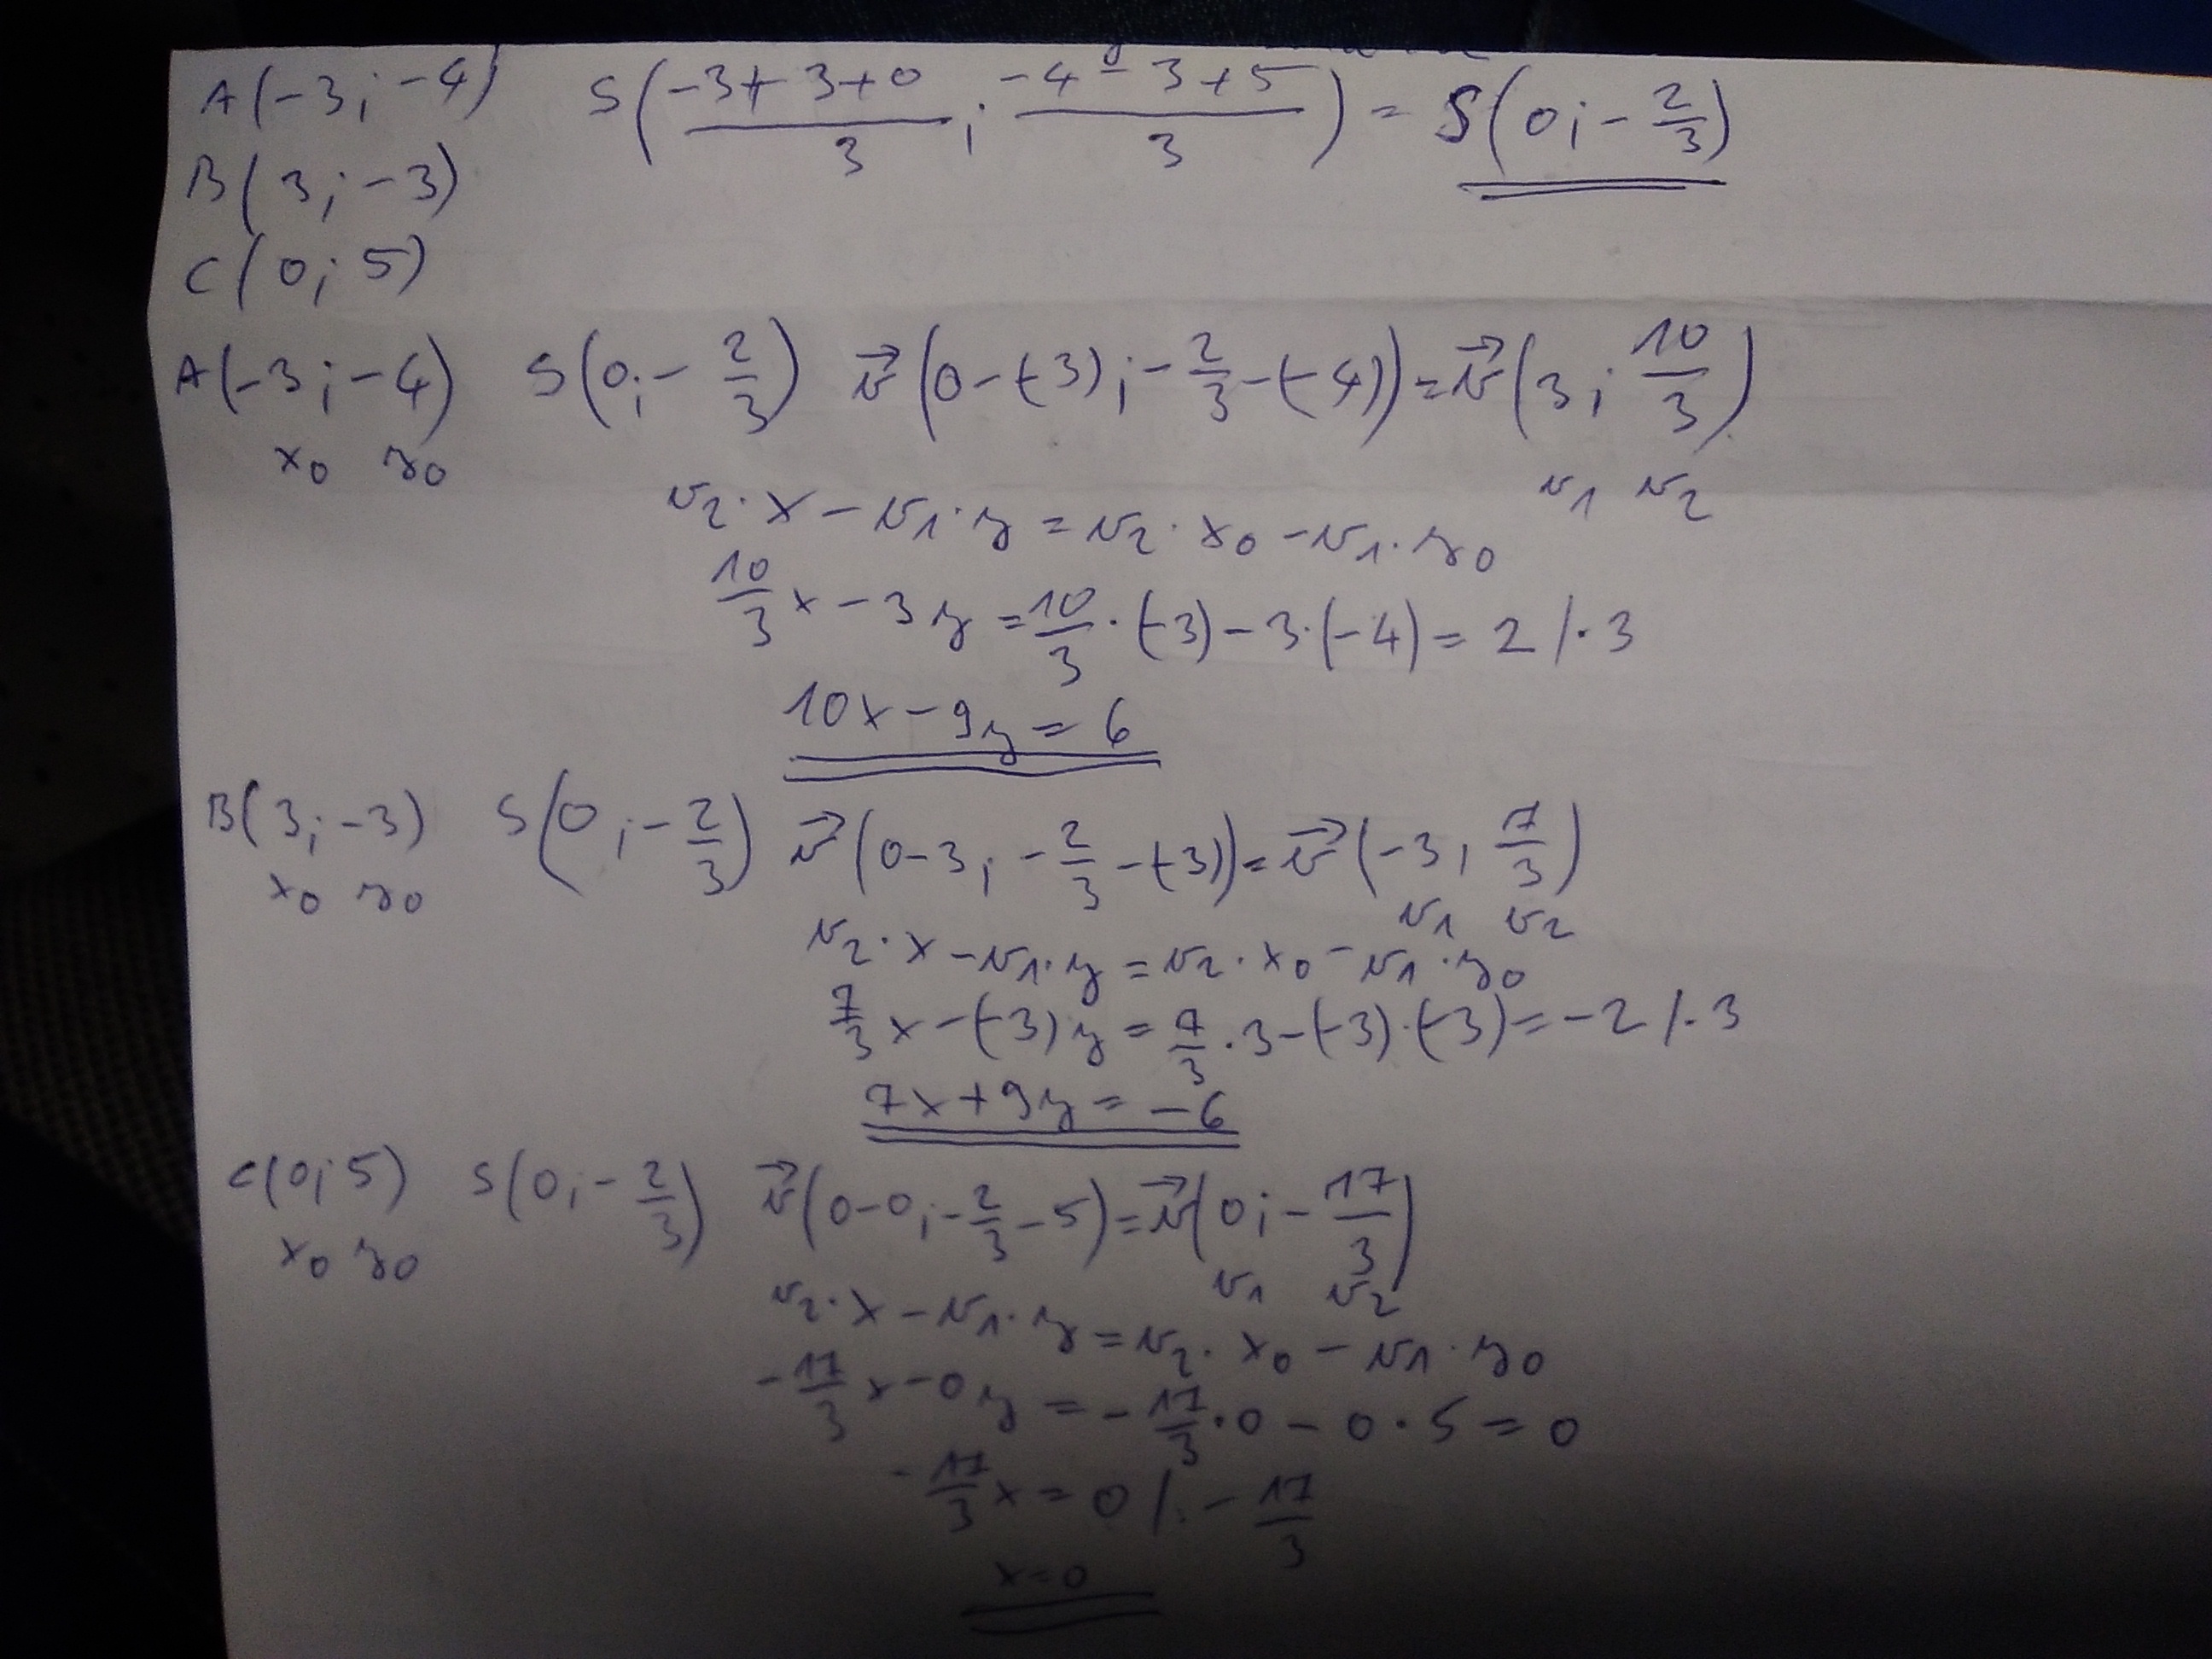 A(-3;-4) S((-3+3+0)/3; (-4-3+5)/3) = S(0;-2/3)
B(3;-3)
C(0;5)
A(-3;-4) S(0;-2/3) v⃗(0-(-3);-2/3-(-4))=v⃗(3;10/3)
x₀ y₀ v₁ v₂
v₂·x-v₁·y=v₂·x₀-v₁·y₀
10/3x-3y=10/3·(-3)-3·(-4)=2/·3
10x-9y=6
B(3;-3) S(0;-2/3) v⃗(0-3;-2/3-(-3))=v⃗(-3;7/3)
x₀ y₀ v₁ v₂
v₂·x-v₁·y=v₂·x₀-v₁·y₀
7/3x-(-3)y=7/3·3-(-3)·(-3)=-2/·3
7x+9y=-6
C(0;5) S(0;-2/3) v⃗(0-0;-2/3-5)=v⃗(0;-17/3)
x₀ y₀ v₁ v₂
v₂·x-v₁·y=v₂·x₀-v₁·y₀
-17/3x-0y=-17/3·0-0·5=0
-17/3x=0/:-17/3
x=0